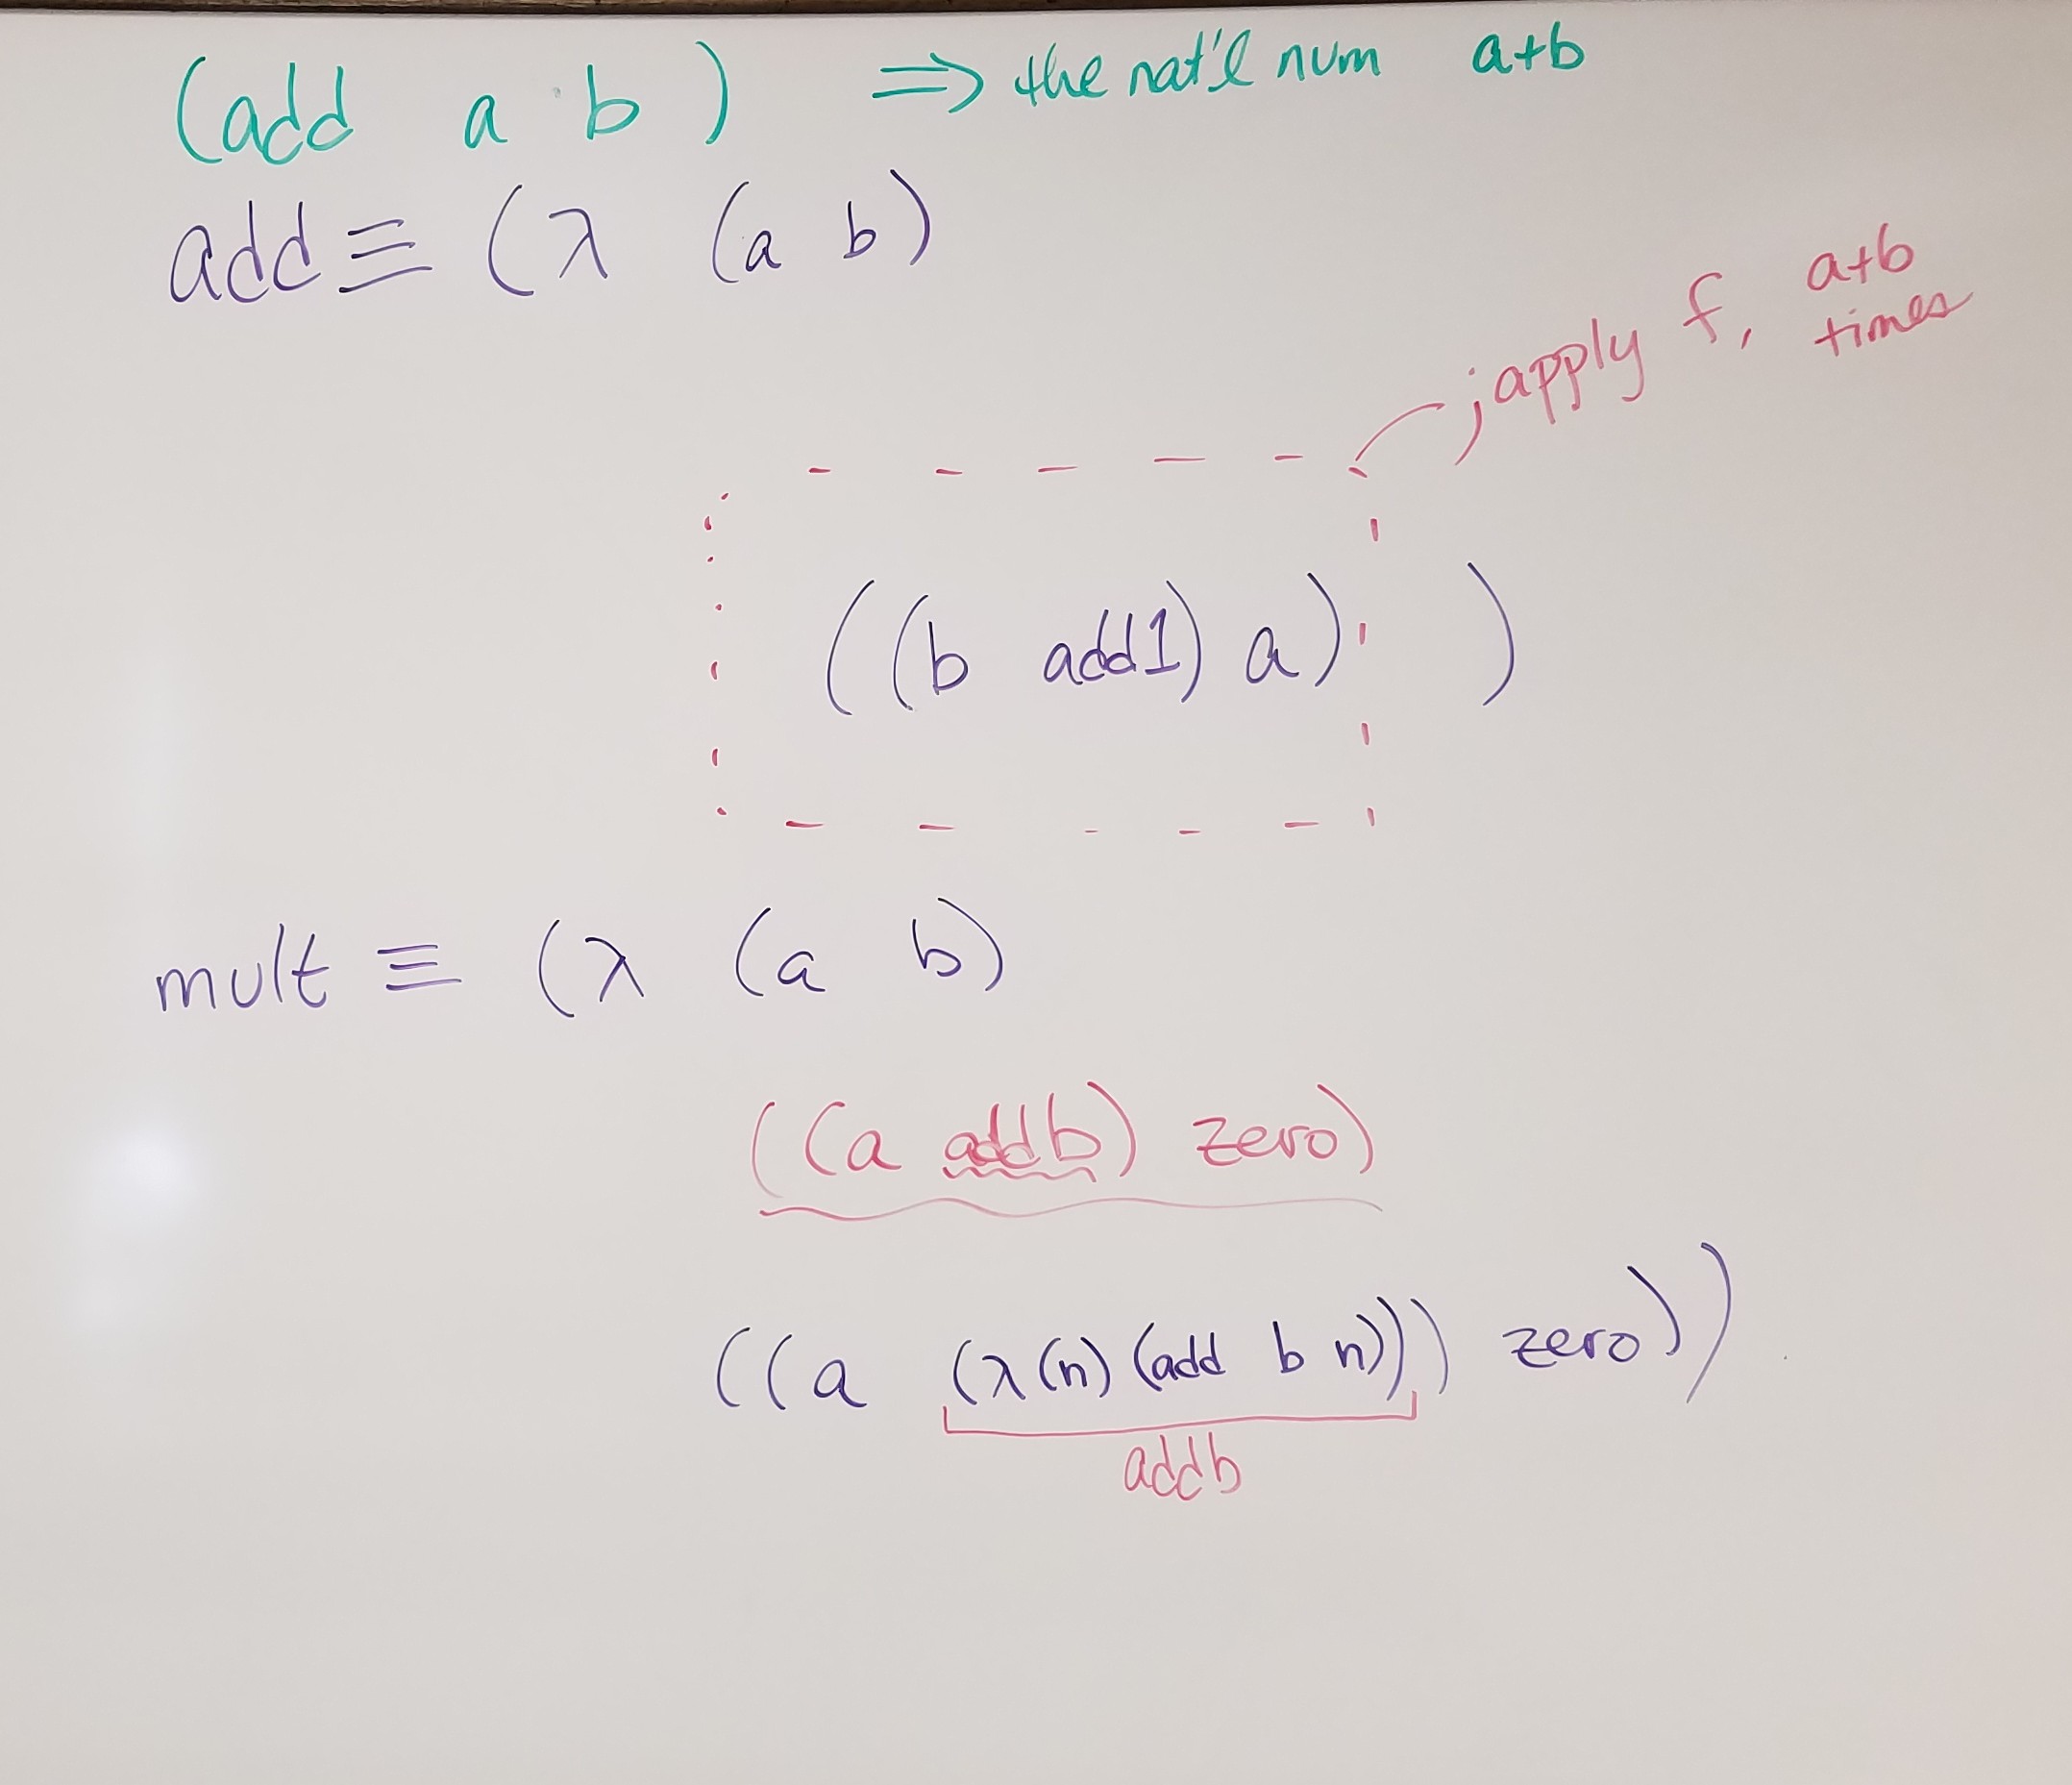 (add a b) ⟹ the nat'l num a+b
add ≡ (λ (a b)
;apply f, a+b
times
((b add1) a) )
mult ≡ (λ (a b)
((a addb) zero)
((a (λ(n) (add b n))) zero))
addb